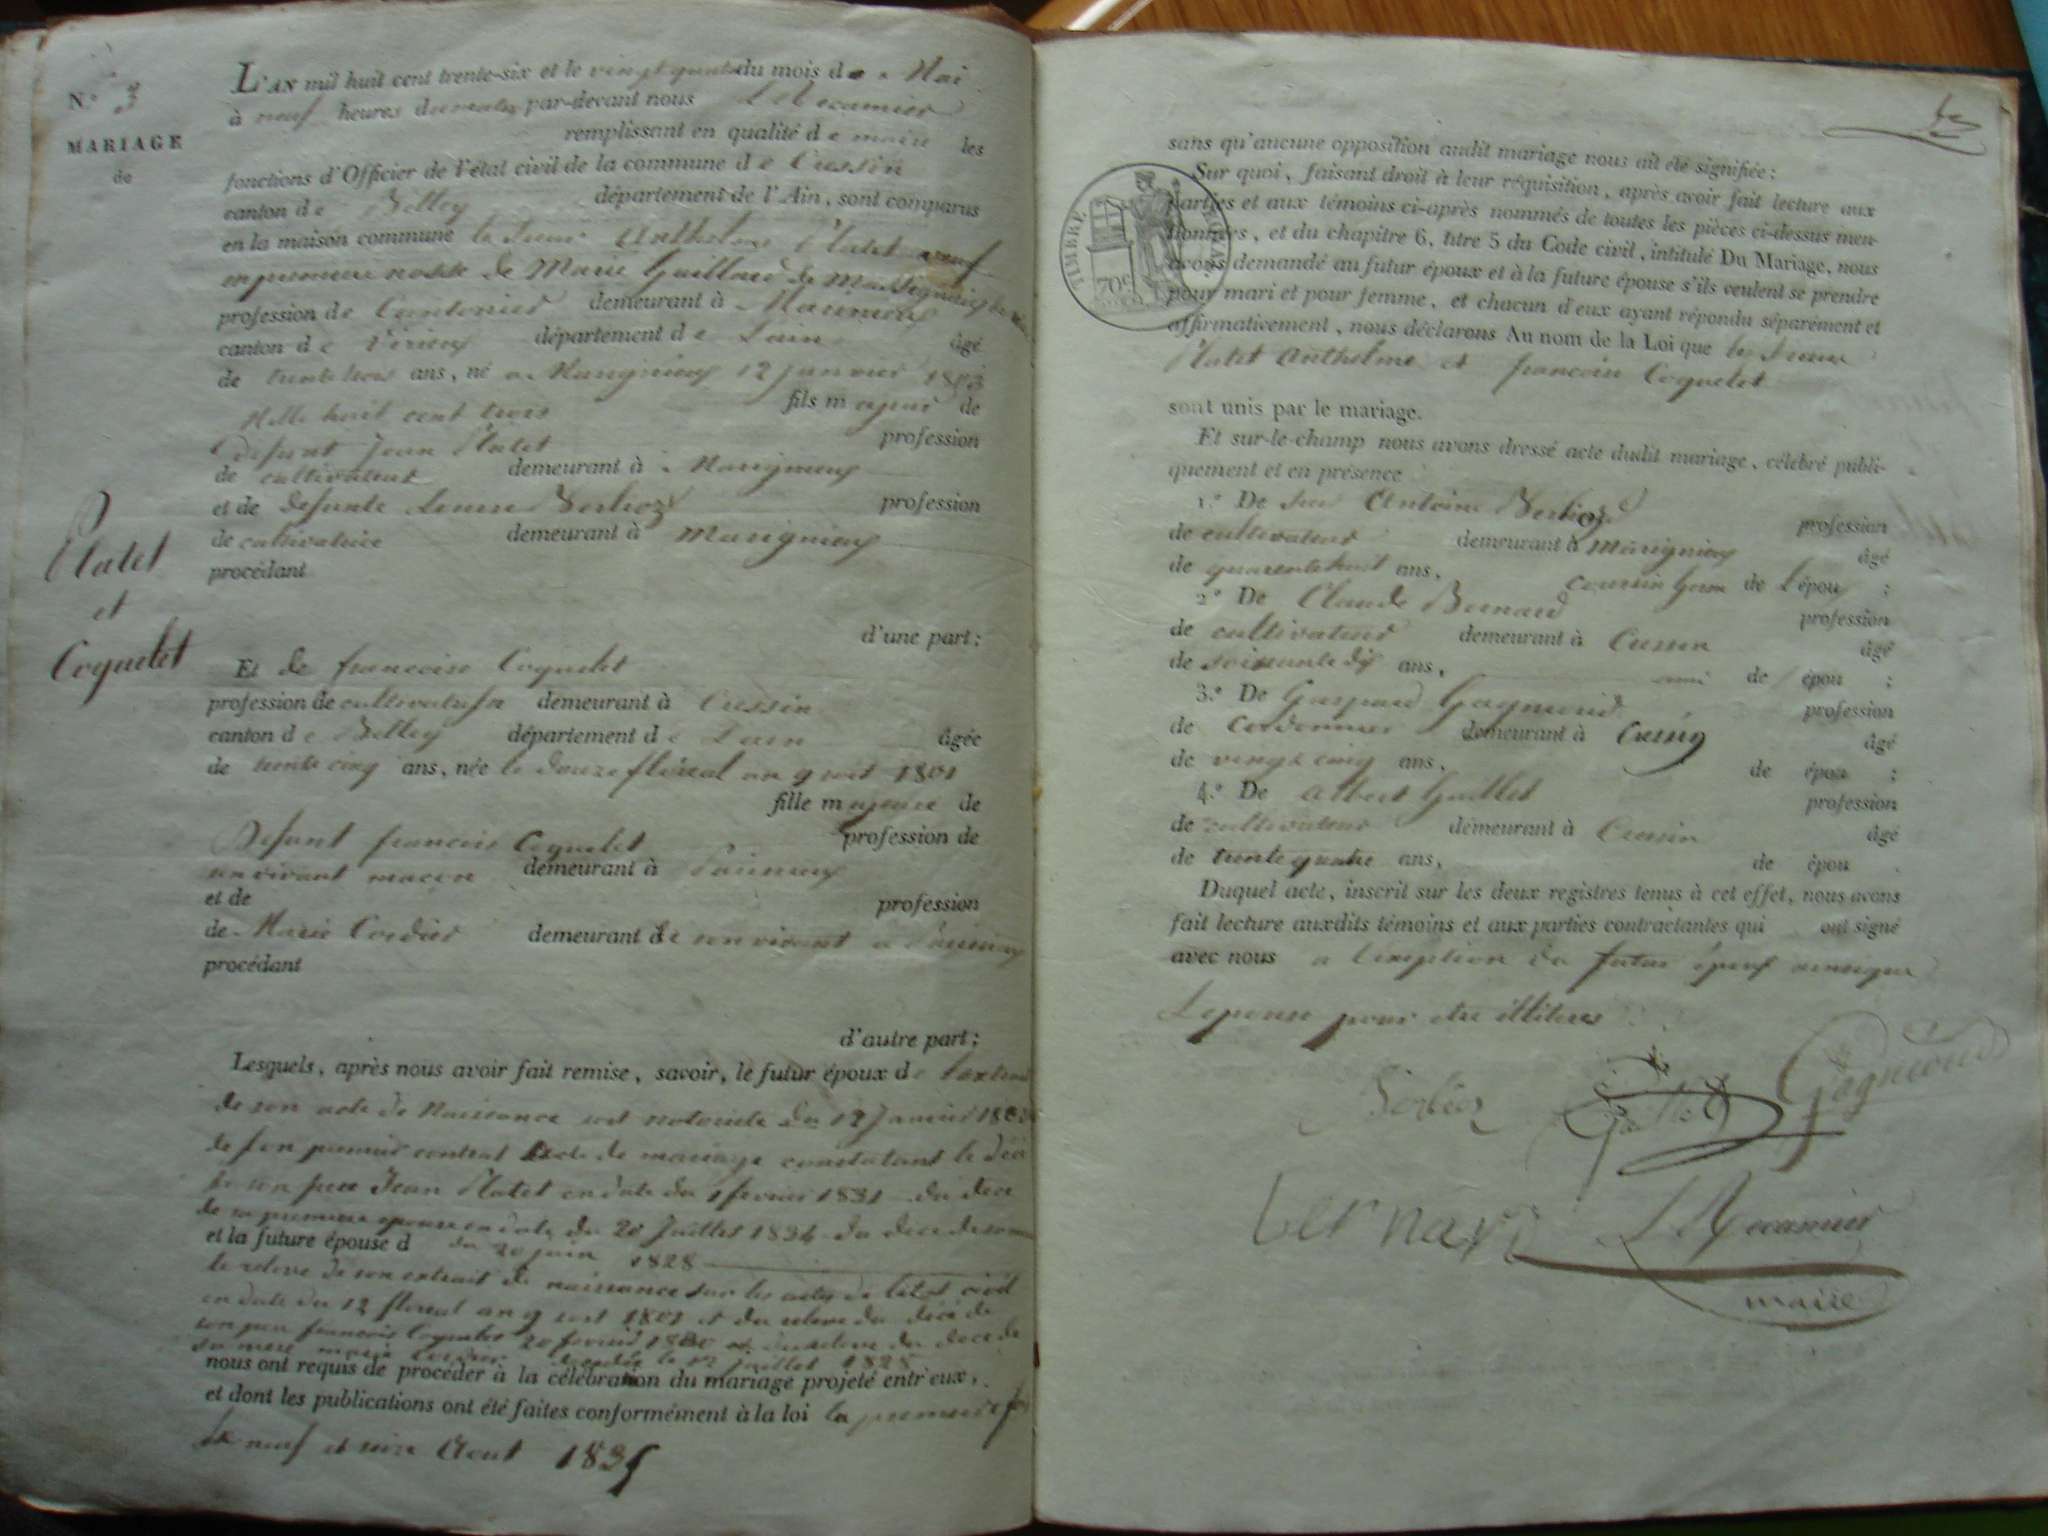 N.º 3
MARIAGE
de
Platet
et
Coquelet
L'AN mil huit cent trente-six et le vingt quatre du mois de Mai
à neuf heures du matin par-devant nous L. Récamier
remplissant en qualité de maire les
fonctions d'Officier de l'état civil de la commune de Cressin
canton de Belley département de l'Ain, sont comparus
en la maison commune le Sieur Anthelme Platet veuf
en première nosse de Marie Guillard de
profession de Cantonier demeurant à
canton de Virieux département de Lain âgé
de trente trois ans, né a Marignieux 12 janvier 1803
Mille huit cent trois fils majeur de
Defunt Jean Platet profession
de cultivateur demeurant à Marignieux
et de Defunte Berlioz profession
de cultivatrice demeurant à Marignieux
procédant
d'une part;
Et de francoise Coquelet
profession de cultivatrisse demeurant à Cressin
canton de Belley département de Lain âgée
de trente cinq ans, née le douze floréal an 9 soit 1801
fille majeure de
Defunt francois Coquelet profession de
en vivant macon demeurant à
et de profession
de Marie Cordier demeurant de son vivant a
procédant
d'autre part;
Lesquels, après nous avoir fait remise, savoir, le futur époux de
de son acte de Naissance soit notoriete du 12 Janvier 1803
de son premier contrat acte de mariage constatant le
de son pere Jean Platet en date du 1 fevrier 1831 du dece
de sa premiere epouse en date du 20 Juillet 1834 du dece de
et la future épouse d du 20 juin 1828
le releve de son extrait de naissance sur les actes de letat civil
en date du 12 floreal an 9 soit 1801 et du releve du décé de
son pere francois Coquelet 20 fevrier et du releve du dece de
sa mere marie Cordier le 12 juillet 1828
nous ont requis de procéder à la célébration du mariage projeté entr'eux,
et dont les publications ont été faites conformément à la loi la premiere fois
le neuf et seize Aout 1835
sans qu'aucune opposition audit mariage nous ait été signifiée;
Sur quoi, faisant droit à leur réquisition, après avoir fait lecture aux
parties et aux témoins ci-après nommés de toutes les pièces ci-dessus men-
tionnées, et du chapitre 6, titre 5 du Code civil, intitulé Du Mariage, nous
avons demandé au futur époux et à la future épouse s'ils veulent se prendre
pour mari et pour femme, et chacun d'eux ayant répondu séparément et
affirmativement, nous déclarons Au nom de la Loi que les Sieur
Platet Anthelme et francoise Coquelet
sont unis par le mariage.
Et sur-le-champ nous avons dressé acte dudit mariage, célébré publi-
quement et en présence
1.º De Sieur Antoine Berlioz profession
de cultivateur demeurant à Marignieux âgé
de quarente huit ans, coussin germ de l'époux ;
2.º De Claude Bernard profession
de cultivateur demeurant à Cressin âgé
de soixante dix ans, ami de épou ;
3.º De Gaspard Gagnieud profession
de Cordonnier demeurant à Cressin âgé
de vingt cinq ans, de épou ;
4.º De Albert Guillet profession
de cultivateur demeurant à Cressin âgé
de trente quatre ans, de épou
Duquel acte, inscrit sur les deux registres tenus à cet effet, nous avons
fait lecture auxdits témoins et aux parties contractantes qui ont signé
avec nous a lexeption du futur époux
Lepouse pour etre illiteres
TIMBRE
70c
Berlioz
Gagnieud
bernard
L Récamier
maire